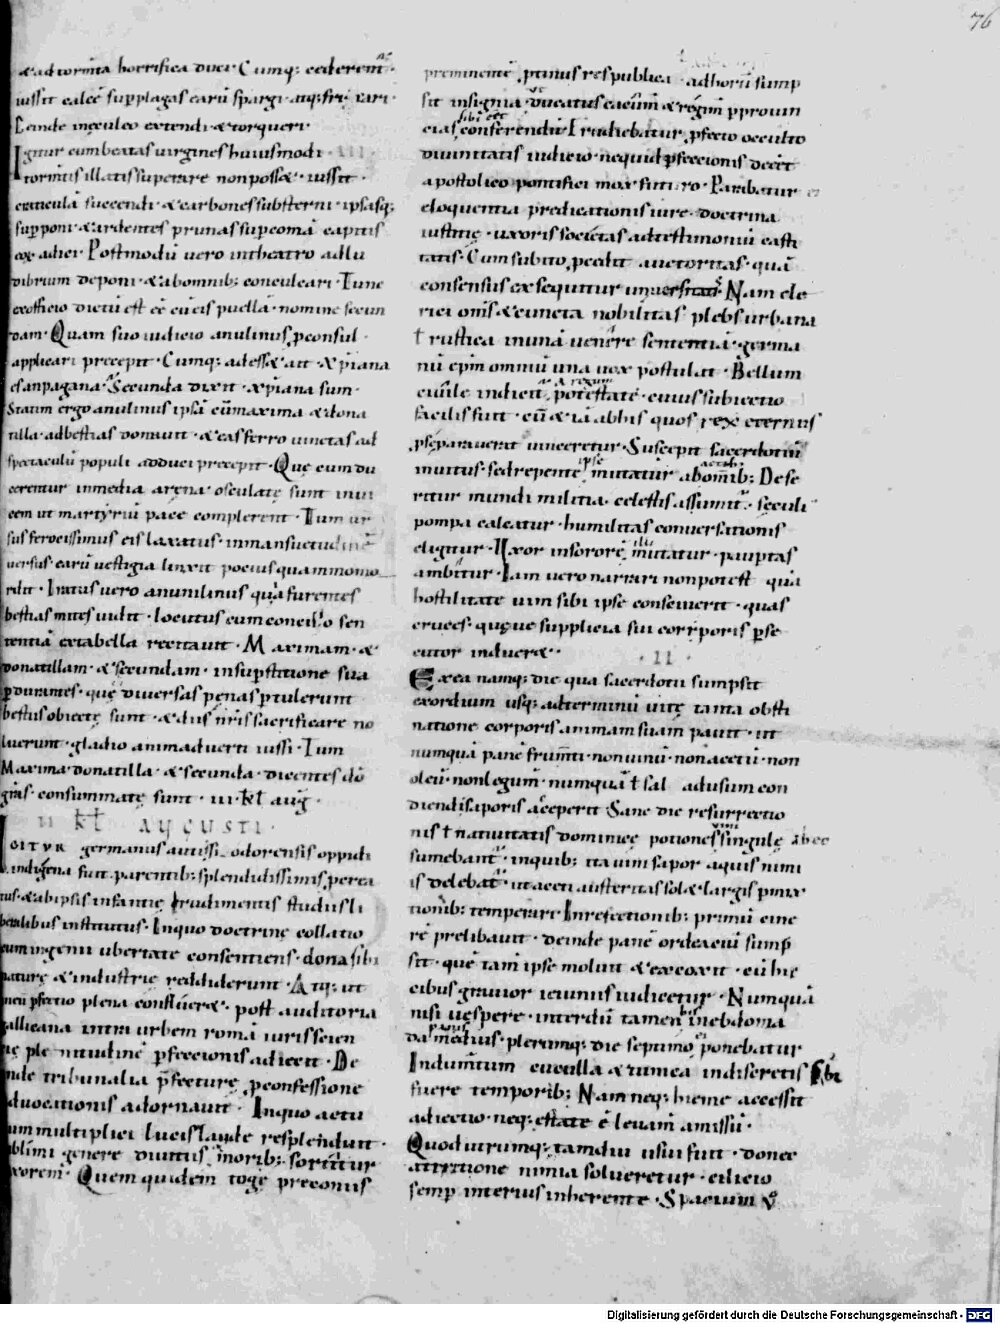 76
& ad torm̄ta horrifica duci · Cumq; cederent̄ ·
iussit calcē sup plagas earū spargi · atq; fricari ·
Deinde ineculeo extendi & torqueri ·
Igitur cum beatas virgines huiusmodi · III ·
tormtis illatis superare non poss& · iussit ·
craticulā succendi · & carbones substerni · ipsasq;
supponi · & ardentes prunas sup comā capitis
eoꝝ adici · Postmodū uero intheatro ad lu
dibrium deponi · & abomnib; conculcari · Tunc
exofficio dictū est eē eu eis puellā · nomine secun
dam · Quam suo iudicio anulinus p̱consul
applicari precepit · Cumq; adess& ait · Xp̄iana
es anpagana · Secunda dixit · xp̄iana sum ·
Statim ergo anulinus ipsā cū maxima & dona
tilla · adbestias damnauit · & eas ferro uinctas ad
spectaculū populi adduci precepit · Que cum du
cerentur inmedia arena · osculate sunt inui
cem ut martyriū pace complerent · Tum ur
sus ferocissimus eis laxatus · in mansuetudine
uersus · earū uestigia linxit pocius quam momo
rdit · Iratus uero anulinus quā furentes
bestias mites uidit · locutus cum concilio sen
tentiā extabella recitauit · Maximam · &
donatillam · & secundam · insupstitione sua
pdurantes · quę diuersas penas ptulerunt
bestiis obiecte sunt · & diis nr̄is sacrificare no
luerunt · gladio animaduerti iussi · Tum
Maxima donatilla · & secunda · dicentes dō
grās · consummatę sunt · iii kl̄ aug ·
II KL̄ AUGUSTI ·
IGITUR germanus autissiodorensis oppidi
indigena fuit · parentib; splendidissimis p̱crea
tus · & abipsis infantię crudimentis studiis li
beralibus institutus · Inquo doctrinę collatio
cum ingenii ubertate consentiens · dona sibi
naturę & industrię reddiderunt · Atq; ut
ineū pfectio plena conflueret · post auditoria
gallicana intra urbem romā iuris scien
tię plenitudinē pfeccionis adiecit · De
inde tribunalia pfecturę p̱confessione
aduocationis adornauit · Inquo actu
cum multiplici lucis laude resplenduit ·
sublimi genere diuitiis moribus sortitur
uxorem · Quem quidem togę preconiis
preminentē p̱tinus respublica · adhonorū sump
sit insignia · ducatus culmē & regim̄ p provin
cias conferendū · Erudiebatur p̱fecto occulto
diuinitatis iudicio · nequid pfeccionis deeēt
apostolico pontifici mox futuro · Parabatur
eloquentia predicationis iure · doctrina
iustitię · uxoris societas adtestimoniū casti
tatis · Cum subito p̱cedit auctoritas · quā
consensus exsequitur universitatis · Nam cle
rici oms̄ & cuncta nobilitas plebs urbana
ł rustica inunā uenere sententiā · germa
nū ep̄m omniū una uox postulat · Bellum
ciuile indicit potestate · cuius subiectio
facilis fuit · cū & iā ab his quos rex eternus
p̱sẽparauerat uinceretur · Suscepit sacerdotiū
inuitus · sed repente mutatur abom̄ib; Dese
ritur mundi militia · celestis assumit · seculi
pompa calcatur · humilitas conuersationis
eligitur · Uxor insororē mutatur · paup̱tas
ambitur · Iam uero narrari nonpotest qua
hostilitate uim sibi ipse consciuerit · quas
cruces · quęue supplicia sui corrporis pse
cutor induxer& ·
· II ·
Exea namq; die qua sacerdotii sumpsit
exordium usq; adterminū uite tanta obsti
natione corporis animam suam pauit · ut
numquā panē frum̄ti · nonuinū · nonacetū · non
oleū · nonlegum̄ · numquā ł sal adusum con
diendi saporis acceperit · Sane die resurrectio
nis ł natiuitatis dominice potiones singule abeo
sumebant · inquib; ita uini sapor aquis nimi
is delebat · ut aceti austeritas solet largis pmix
tionib; temperari · Inrefectionib; primū cine
rē prelibauit · deinde panē ordeaciū sump
sit · quē tam̄ ipse moluit & excoxit · cū hic
cibus grauior ieiuniis iudicetur · Numquā
nisi uespere · interdū tamen inebdoma
da medius · plerumq; die septimo ponebatur
Indumtum cuculla & tunica indiscretis sibi
fuere temporib; Nam neq; hieme accessit
adiectio · neq; estate ē leuam̄ amissū ·
Quod utrumq; tamdiu usui fuit · donec
attritione nimia solueretur · cilicio
semp interius inherente · Spacium ů
Digitalisierung gefördert durch die Deutsche Forschungsgemeinschaft · DFG